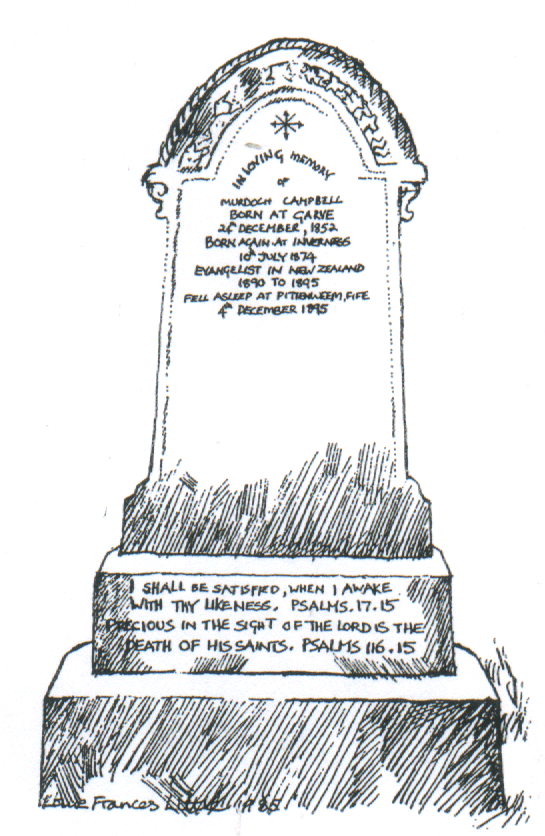 IN LOVING MEMORY
OF
MURDOCH CAMPBELL
BORN AT GARVE
24th DECEMBER, 1852
BORN AGAIN AT INVERNESS
10th JULY 1874
EVANGELIST IN NEW ZEALAND
1890 TO 1895
FELL ASLEEP AT PITTENWEEM, FIFE
4th DECEMBER 1895
I SHALL BE SATISFIED, WHEN I AWAKE
WITH THY LIKENESS. PSALMS. 17.15
PRECIOUS IN THE SIGHT OF THE LORD IS THE
DEATH OF HIS SAINTS. PSALMS 116.15
Frances 1985